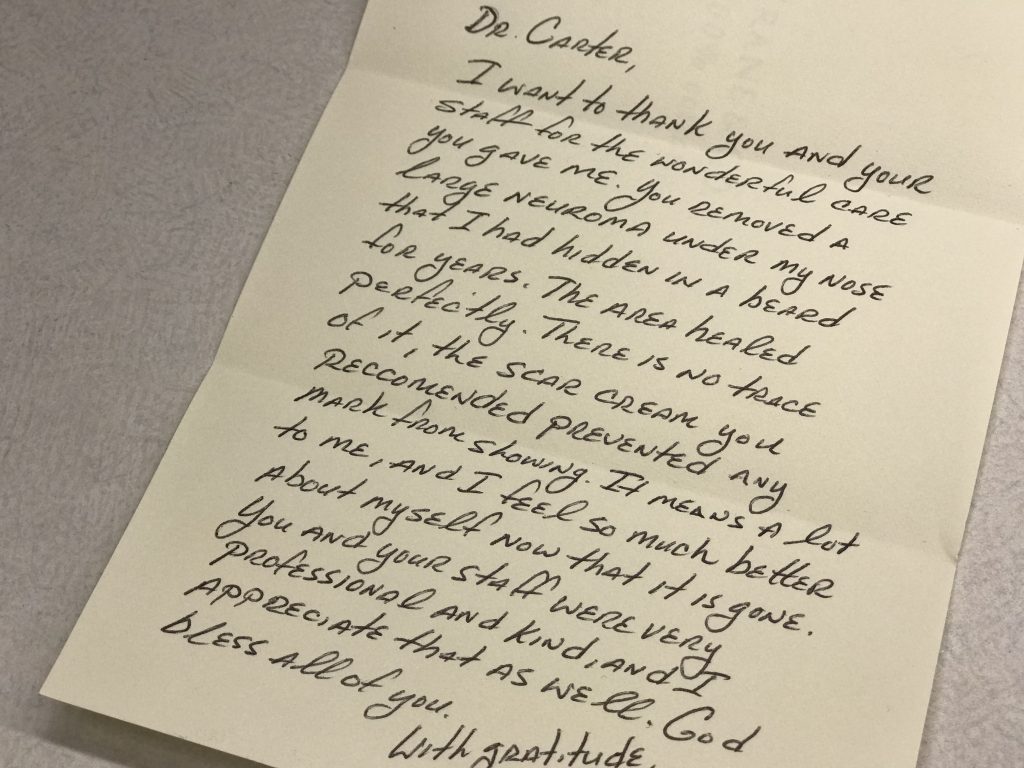 Dr. Carter,
I want to thank you and your
staff for the wonderful care
you gave me. You removed a
large neuroma under my nose
that I had hidden in a beard
for years. The area healed
perfectly. There is no trace
of it, the scar cream you
reccomended prevented any
mark from showing. It means a lot
to me, and I feel so much better
about myself now that it is gone.
You and your staff were very
professional and kind, and I
appreciate that as well. God
bless all of you.
With gratitude,